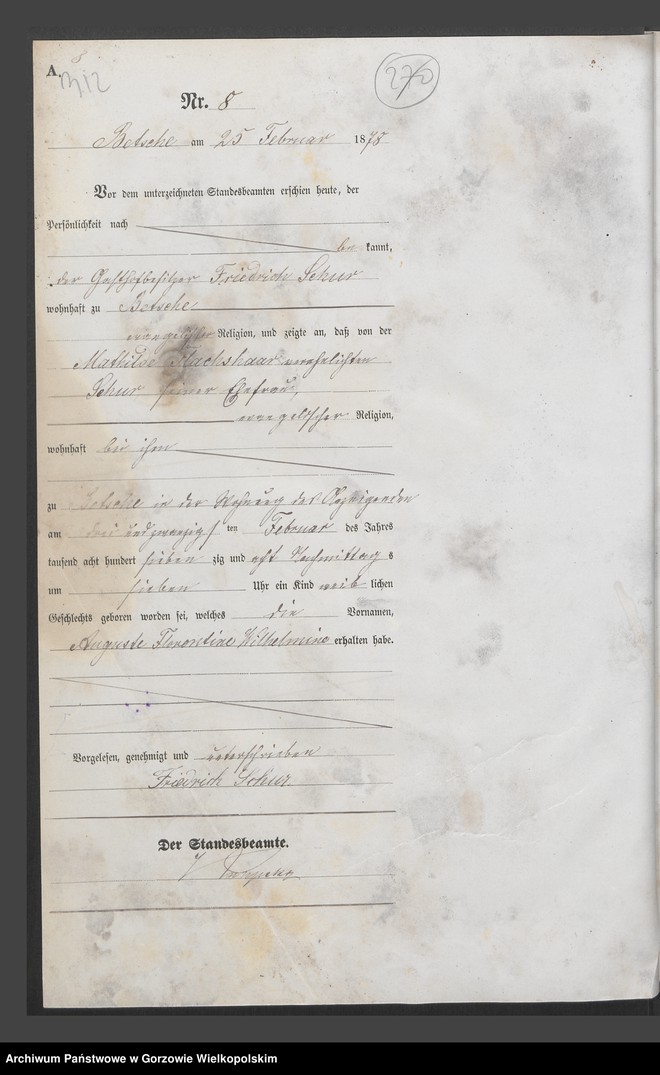 A.
270
Nr. 8
Betsche am 25 Februar 1878
Vor dem unterzeichneten Standesbeamten erschien heute, der
Persönlichkeit nach
be kannt,
der Gasthofbesitzer Friedrich Schur
wohnhaft zu Betsche
evangelischer Religion, und zeigte an, daß von der
Mathilde Flachshaar verehelichten
Schur seiner Ehefrau,
evangelischer Religion,
wohnhaft bei ihm
zu Betsche in der Wohnung des Anzeigenden
am drei und zwanzigs ten Februar des Jahres
tausend acht hundert sieben zig und acht Nachmittag s
um sieben Uhr ein Kind weib lichen
Geschlechts geboren worden sei, welches die Vornamen,
Auguste Florentine Wilhelmine erhalten habe.
Vorgelesen, genehmigt und unterschrieben
Friedrich Schur
Der Standesbeamte.
Archiwum Państwowe w Gorzowie Wielkopolskim